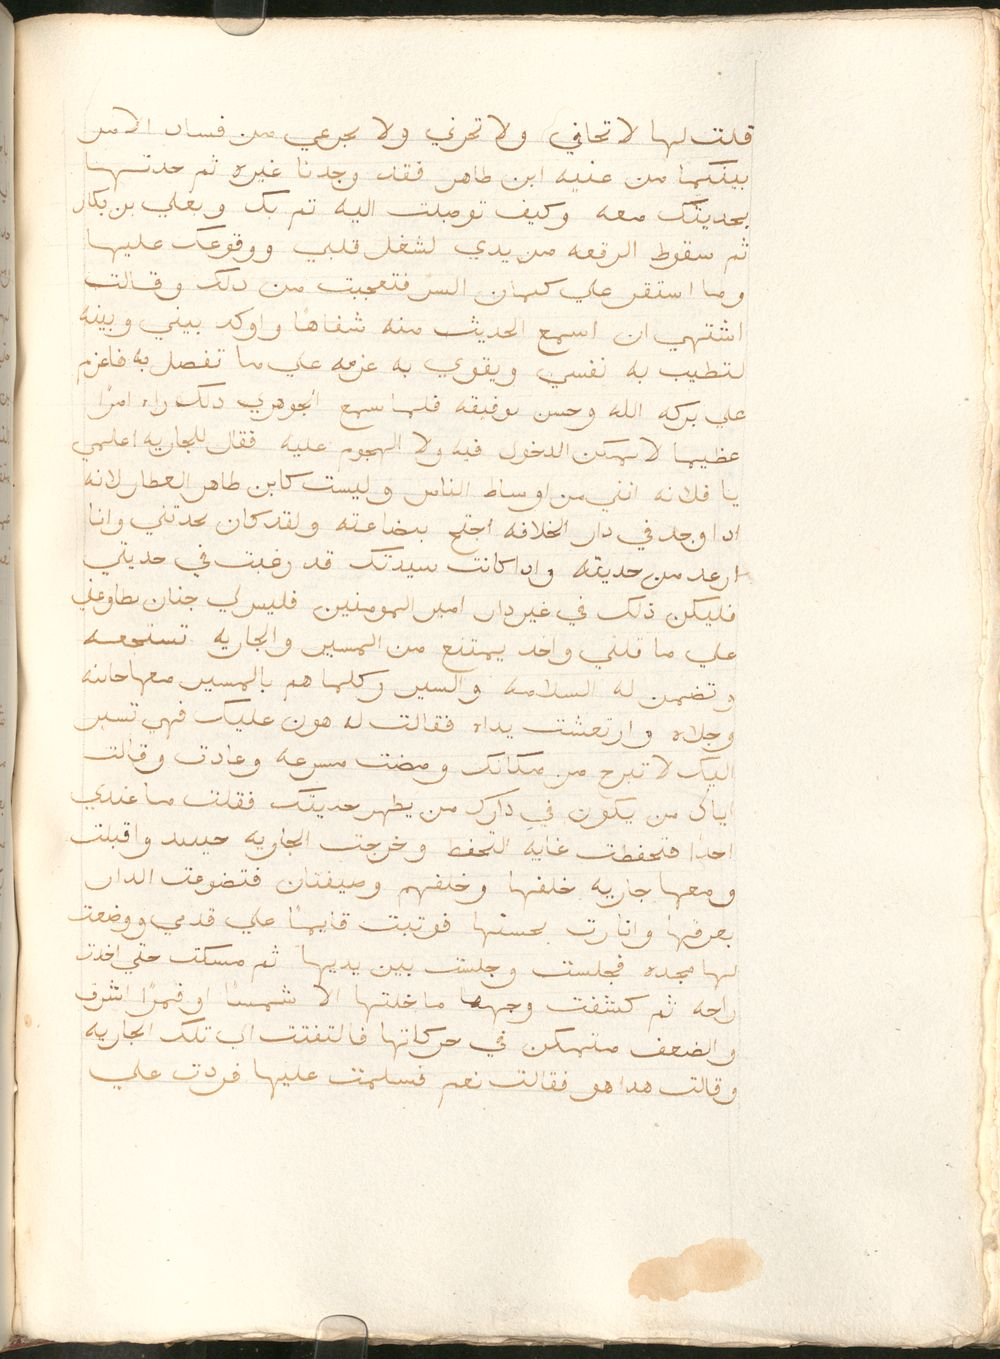 قلت لها لا تخافي ولا تحرني ولا تجرعي من فساد الامر
بينكما من غيبه ابن طاهر فقد وجدنا غيره ثم حدتها
بحديثك معه وكيف توصلت اليه تم بك وبعلي بن بكار
ثم سقوط الرقعه من يدي لشغل قلبي ووقوعك عليها
وما استقر علي كتمان السر فتعجبت من دلك وقالت
اشتهي ان اسمع الحديث منه شفاهًا واوكد بيني وبينه
لتطيب به نفسي ويقوي به عزمه علي ما تفصل به فاعزم
علي بركه الله وحسن توفيقه فلما سمع الجوهري دلك راه امرًا
عظيما لا يمكن الدخول فيه ولا الهجوم عليه فقال للجاريه اعلمي
يا فلانه انني من اوساط الناس وليست كابن طاهر العطار لانه
ادا وجد في دار الخلافه احتج ببضاعته ولقد كان يحدتني وانا
ارعد من حديثه وادا كانت سيدتك قد رغبت في حديتي
فليكن ذلك في غير دار امير المومنين فليس لي جنان يطاوعني
علي ما قلتي واخد يمتنع من المسير والجاريه تستحعه
وتضمن له السلامه والستر وكلما هم بالمسير معها خانته
رجلاه وارتعشت يداه فقالت له هون عليك فهي تسير
اليك لا تبرح من مكانك ومضت مسرعه وعادت وقالت
اياك من يكون في دارك من يظهر حديتك فقلت ما عندي
احدًا فتحفطت غايه التحفط وخرجت الجاريه حينيد واقبلت
ومعها جاريه خلفها وخلفهم وصيفتان فتضوعت الدار
بعرفها وانارت بحسنها فوتبت قايمًا علي قدمي ووضعت
لها مخده فجلست وجلست بين يديها ثم مسكت حتي اخدت
راحه ثم كشفت وجهها ما خلتها الا شمسًا او قمرًا اشرق
والضعف متمكن في حركاتها فالتفتت الي تلك الجاريه
وقالت هدا هو فقالت نعم فسلمت عليها فردت علي